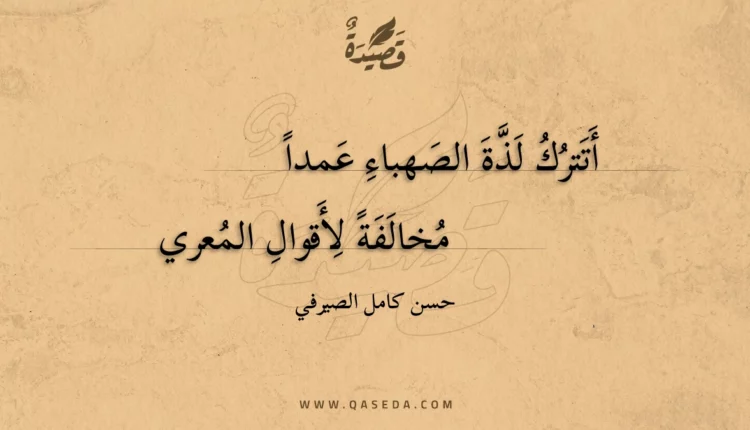 قَصِيْدَةٌ
أَتَترُكُ لَذَّةَ الصَهباءِ عَمداً
مُخالَفَةً لِأَقوالِ المُعري
حسن كامل الصيرفي
WWW.QASEDA.COM